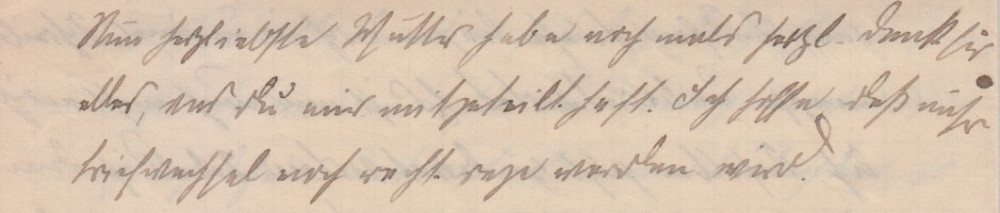 Nun herzliebste Mutter habe noch mals herzl. Dank für
alles, was du mir mitgeteilt hast. Ich hoffe, daß unser
briefwechsel noch recht rege werden wird.